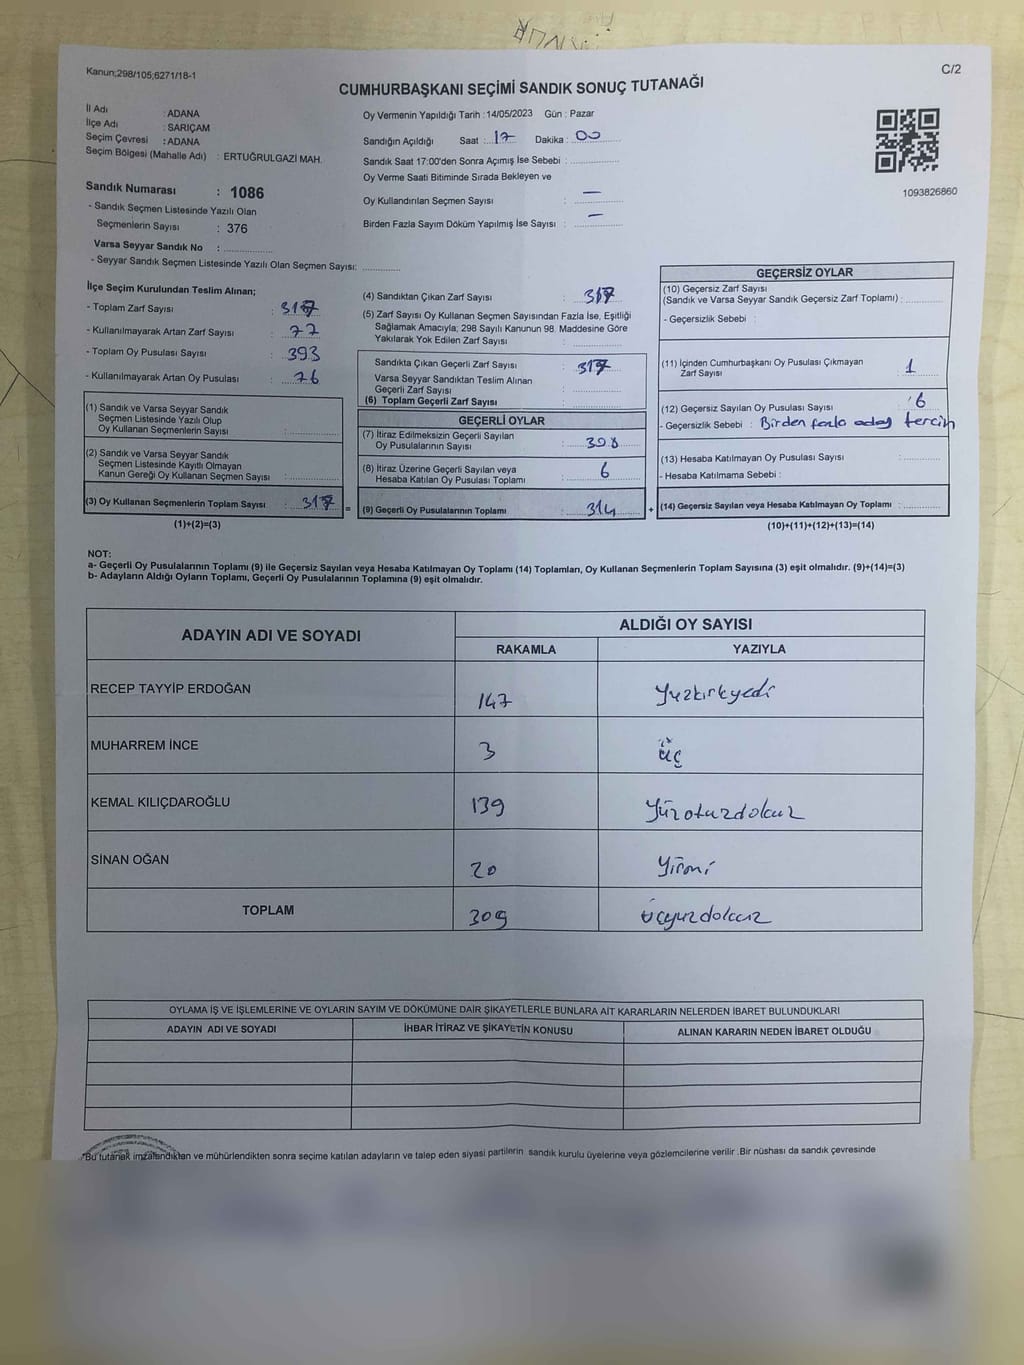 Kanun;298/105;6271/18-1
C/2
CUMHURBAŞKANI SEÇİMİ SANDIK SONUÇ TUTANAĞI
İl Adı : ADANA
İlçe Adı : SARIÇAM
Seçim Çevresi : ADANA
Seçim Bölgesi (Mahalle Adı) : ERTUĞRULGAZİ MAH.
Sandık Numarası : 1086
- Sandık Seçmen Listesinde Yazılı Olan
Seçmenlerin Sayısı : 376
Varsa Seyyar Sandık No :
- Seyyar Sandık Seçmen Listesinde Yazılı Olan Seçmen Sayısı:
Oy Vermenin Yapıldığı Tarih :14/05/2023 Gün : Pazar
Sandığın Açıldığı Saat : 17 Dakika : 00
Sandık Saat 17:00'den Sonra Açımış İse Sebebi :
Oy Verme Saati Bitiminde Sırada Bekleyen ve
Oy Kullandırılan Seçmen Sayısı : —
Birden Fazla Sayım Döküm Yapılmış İse Sayısı : —
1093826860
İlçe Seçim Kurulundan Teslim Alınan;
- Toplam Zarf Sayısı :
- Kullanılmayarak Artan Zarf Sayısı : 77
- Toplam Oy Pusulası Sayısı : 393
- Kullanılmayarak Artan Oy Pusulası : 76
(1) Sandık ve Varsa Seyyar Sandık
Seçmen Listesinde Yazılı Olup
Oy Kullanan Seçmenlerin Sayısı :
(2) Sandık ve Varsa Seyyar Sandık
Seçmen Listesinde Kayıtlı Olmayan
Kanun Gereği Oy Kullanan Seçmen Sayısı :
(3) Oy Kullanan Seçmenlerin Toplam Sayısı : 317 =
(1)+(2)=(3)
(4) Sandıktan Çıkan Zarf Sayısı : 317
(5) Zarf Sayısı Oy Kullanan Seçmen Sayısından Fazla İse, Eşitliği
Sağlamak Amacıyla; 298 Sayılı Kanunun 98. Maddesine Göre
Yakılarak Yok Edilen Zarf Sayısı :
Sandıkta Çıkan Geçerli Zarf Sayısı : 317
Varsa Seyyar Sandıktan Teslim Alınan
Geçerli Zarf Sayısı :
(6) Toplam Geçerli Zarf Sayısı :
GEÇERLİ OYLAR
(7) İtiraz Edilmeksizin Geçerli Sayılan
Oy Pusulalarının Sayısı : 308
(8) İtiraz Üzerine Geçerli Sayılan veya
Hesaba Katılan Oy Pusulası Toplamı : 6
(9) Geçerli Oy Pusulalarının Toplamı : 314 +
GEÇERSİZ OYLAR
(10) Geçersiz Zarf Sayısı
(Sandık ve Varsa Seyyar Sandık Geçersiz Zarf Toplamı) :
- Geçersizlik Sebebi :
(11) İçinden Cumhurbaşkanı Oy Pusulası Çıkmayan
Zarf Sayısı : 1
(12) Geçersiz Sayılan Oy Pusulası Sayısı : 6
- Geçersizlik Sebebi : Birden fazla aday tercih
(13) Hesaba Katılmayan Oy Pusulası Sayısı :
- Hesaba Katılmama Sebebi :
(14) Geçersiz Sayılan veya Hesaba Katılmayan Oy Toplamı :
(10)+(11)+(12)+(13)=(14)
NOT:
a- Geçerli Oy Pusulalarının Toplamı (9) ile Geçersiz Sayılan veya Hesaba Katılmayan Oy Toplamı (14) Toplamları, Oy Kullanan Seçmenlerin Toplam Sayısına (3) eşit olmalıdır. (9)+(14)=(3)
b- Adayların Aldığı Oyların Toplamı, Geçerli Oy Pusulalarının Toplamına (9) eşit olmalıdır.
ADAYIN ADI VE SOYADI ALDIĞI OY SAYISI
RAKAMLA YAZIYLA
RECEP TAYYİP ERDOĞAN 147 Yüzkırkyedi
MUHARREM İNCE 3 üç
KEMAL KILIÇDAROĞLU 139 Yüzotuzdokuz
SİNAN OĞAN 20 Yirmi
TOPLAM 309 üçyüzdokuz
OYLAMA İŞ VE İŞLEMLERİNE VE OYLARIN SAYIM VE DÖKÜMÜNE DAİR ŞİKAYETLERLE BUNLARA AİT KARARLARIN NELERDEN İBARET BULUNDUKLARI
ADAYIN ADI VE SOYADI İHBAR İTİRAZ VE ŞİKAYETİN KONUSU ALINAN KARARIN NEDEN İBARET OLDUĞU
*Bu tutanak imzalandıktan ve mühürlendikten sonra seçime katılan adayların ve talep eden siyasi partilerin sandık kurulu üyelerine veya gözlemcilerine verilir .Bir nüshası da sandık çevresinde